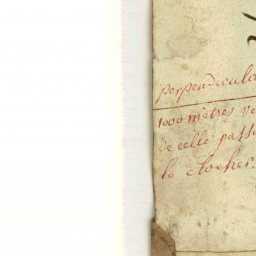 perpendicula
1000 mètres
de celle passa
le clocher.